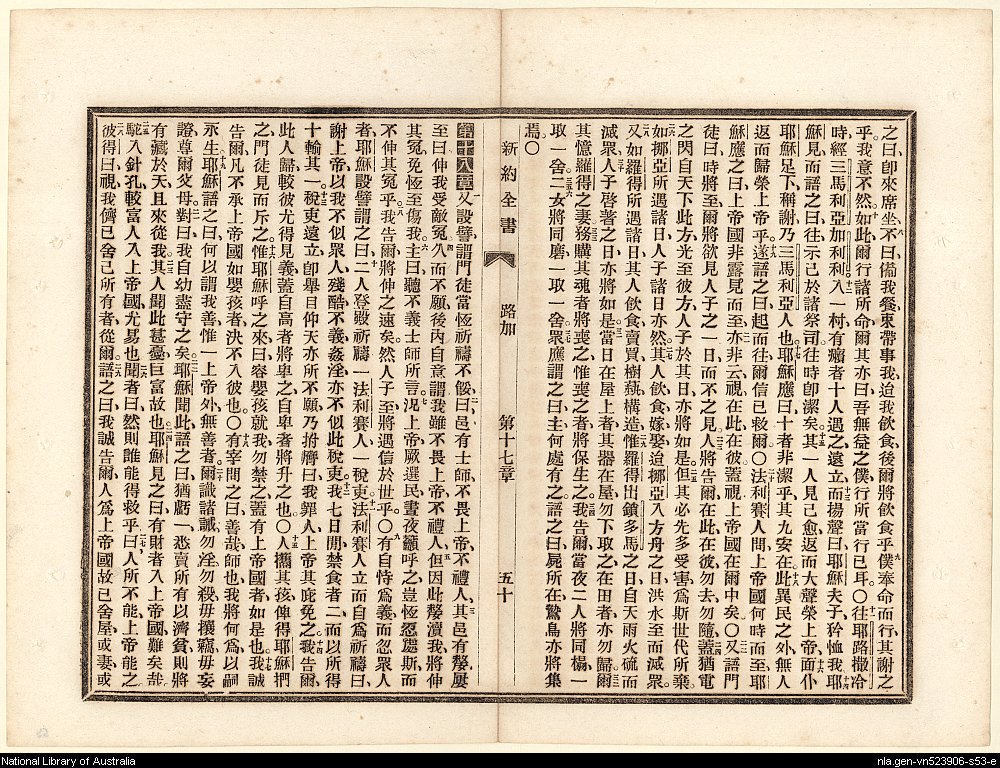 之曰卽來席坐不曰備我餐束帶事我迨我飮食後爾將飮食乎僕奉命而行其謝之
乎我意不然如此爾行諸所命爾其亦曰吾無益之僕行所當行已耳○往耶路撒冷
時經三馬利亞加利利入一村有癩者十人遇之遠立而揚聲曰耶穌夫子矜恤我耶
穌見而語之曰往示己於諸祭司往時卽潔矣其一人見己愈返而大聲榮上帝面仆
耶穌足下稱謝乃三馬利亞人也耶穌應曰十者非潔乎其九安在此異民之外無人
返而歸榮上帝乎遂語之曰起而往爾信已救爾○法利賽人問上帝國何時而至耶
穌應之曰上帝國非露見而至亦非云視在此在彼蓋視上帝國在爾中矣○又語門
徒曰時將至爾將欲見人子之一日而不之見人將告爾在此在彼勿去勿隨蓋猶電
之閃自天下此方光至彼方人子於其日亦將如是但其必先多受害爲斯世代所棄
如挪亞所遇諸日人子諸日亦然其人飮食嫁娶迨挪亞入方舟之日洪水至而滅衆
又如羅得所遇諸日其人飮食賣買樹藝構造惟羅得出鎖多馬之日自天雨火硫而
滅衆人子啓著之日亦將如是當日在屋上者其器在屋勿下取之在田者亦勿歸爾
其憶羅得之妻務購其魂者將喪之惟喪之者將保生之我告爾當夜二人將同榻一
取一舍二女將同磨一取一舍衆應謂之曰主何處有之語之曰屍所在鷙鳥亦將集
焉○
新約全書 路加 第十七章 五十
第十八章又設譬謂門徒當恆祈禱不餒曰邑有士師不畏上帝不禮人其邑有嫠屢
至曰伸我受敵寃久而不願後內自意謂我雖不畏上帝不禮人但因此嫠瀆我將伸
其寃免恆至傷我主曰聽不義士師所言況上帝嚴選民晝夜籲呼之豈恆忍處斯而
不伸其寃乎我告爾將伸之速矣然人子至將遇信於世乎○有自恃爲義而忽衆人
者耶穌設譬謂之曰二人登殿祈禱一法利賽人一稅吏法利賽人立而自爲祈禱曰
謝上帝以我不似衆人殘酷不義姦淫亦不似此稅吏我七日間禁食者二而以所得
十輸其一稅吏遠立卽舉目仰天亦所不願乃拊膺曰我罪人上帝其庶免之我告爾
此人歸較彼尤得見義蓋自高者將卑之自卑者將升之也○人攜其孩俾得耶穌捫
之門徒見而斥之惟耶穌呼之來曰容嬰孩就我勿禁之蓋有上帝國者如是也我誠
告爾凡不承上帝國如嬰孩者決不入彼也○有宰問之曰善哉師也我將何爲以嗣
永生耶穌語之曰何以謂我善惟一上帝外無善者爾識諸誡勿淫勿殺毋攘竊毋妄
證尊爾父母對曰我自幼盡守之矣耶穌聞此語之曰猶虧一悉賣所有以濟貧則將
有藏於天且來從我其人聞此甚憂巨富故也耶穌見之曰有財者入上帝國難矣哉
駝入針孔較富人入上帝國尤易也聞者曰然則誰能得救乎曰人所不能上帝能之
彼得曰視我儕已舍己所有者從爾語之曰我誠告爾人爲上帝國故已舍屋或妻或
National Library of Australia
nla.gen-vn523906-s53-e